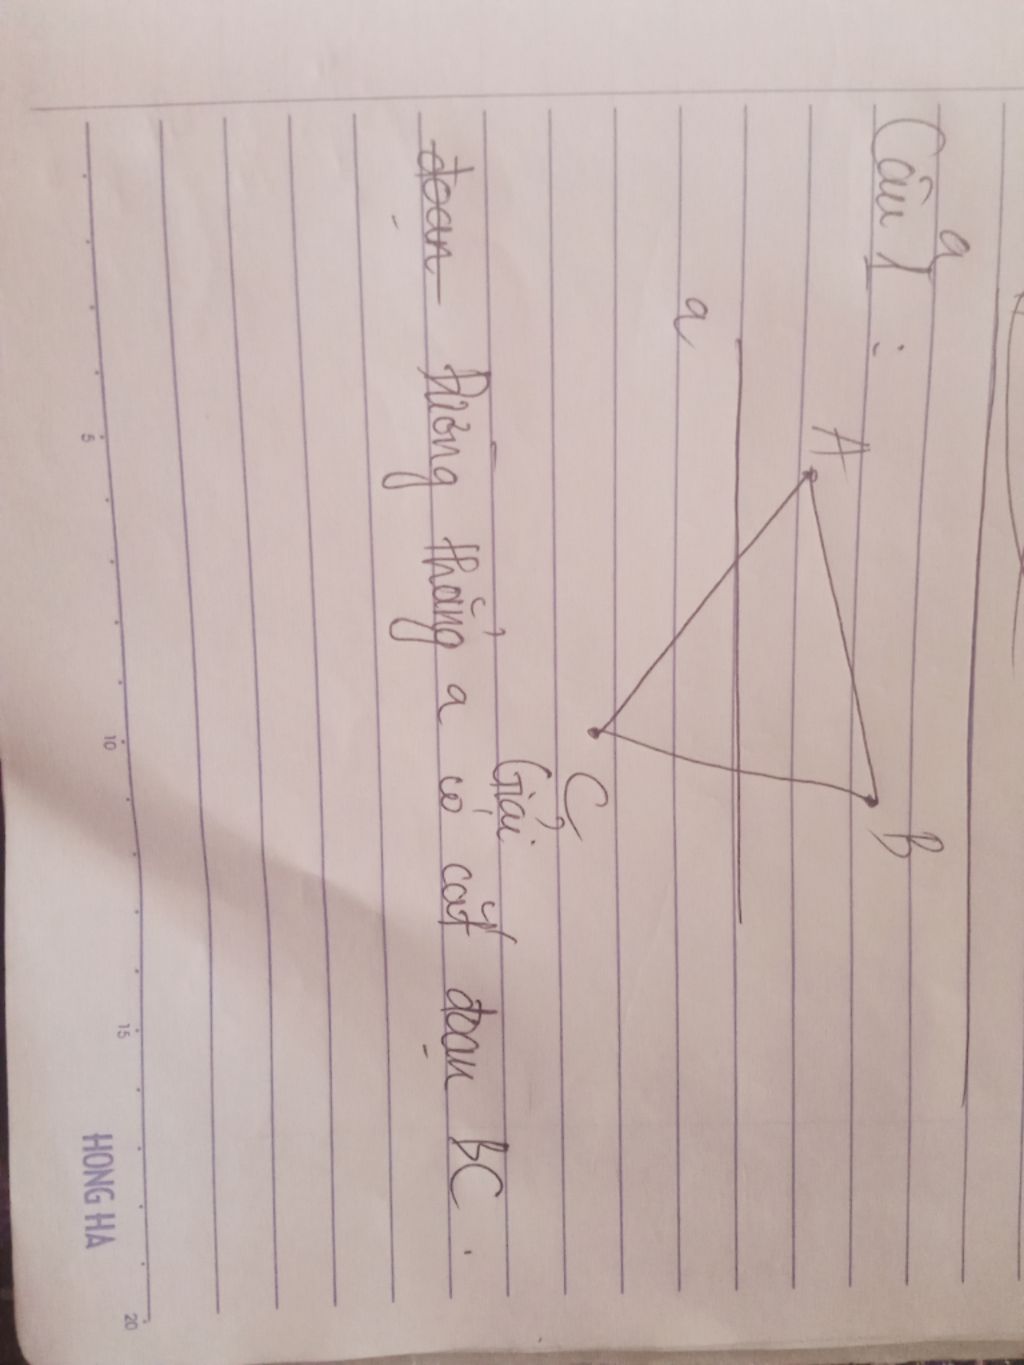 Câu 1 :
a
A
B
a
C
Giải
đoạn Đường thẳng a có cắt đoạn BC .
5 10 15 20
HONG HA